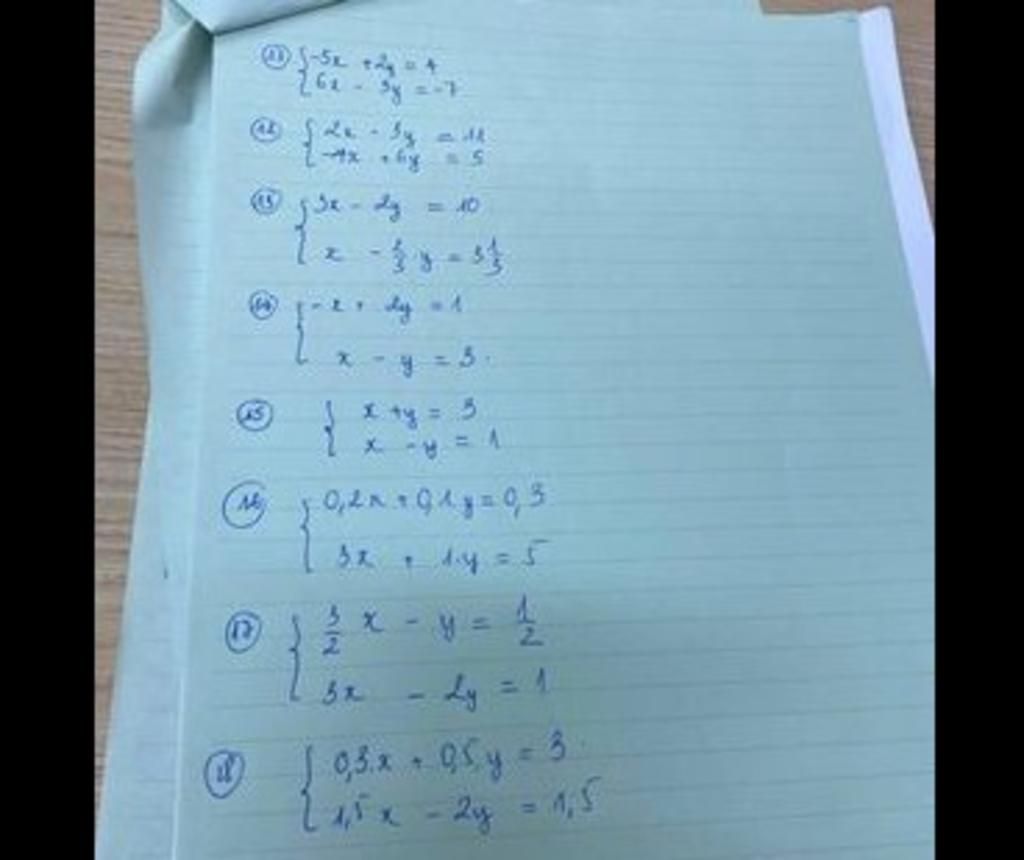 11 { -5x + 2y = 4
6x - 3y = -7
12 { 2x - 3y = 11
-4x + 6y = 5
13 { 3x - 2y = 10
x - 2/3 y = 3 1/3
14 { -x + 2y = 1
x - y = 3
15 { x + y = 3
x - y = 1
16 { 0,2x + 0,1y = 0,3
3x + 1.y = 5
17 { 3/2 x - y = 1/2
3x - 2y = 1
18 { 0,3.x + 0,5.y = 3
1,5x - 2y = 1,5